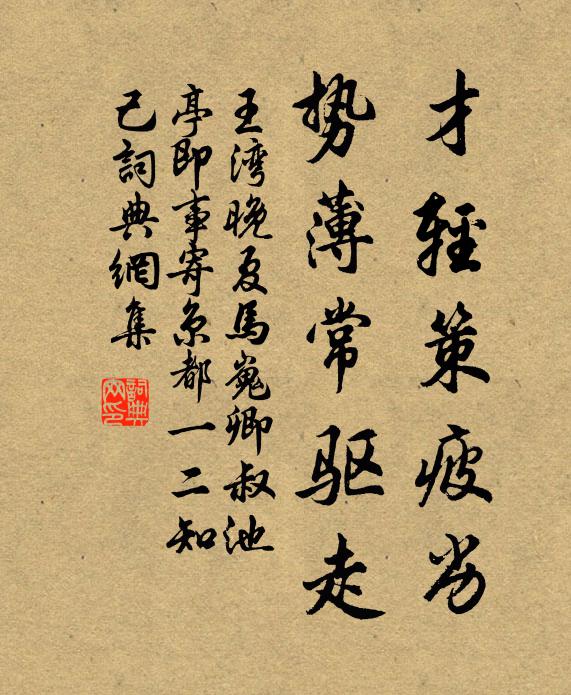 才轻策疲劣
势薄常驱走
王湾晚夏馬嵬卿叔池
亭即事寄京都一二知
己詞典網集
詞典
网印